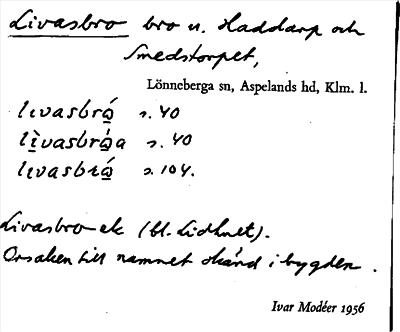 Livasbro bro n. Haddarp och
Smedstorpet,
Lönneberga sn, Aspelands hd, Klm. l.
lıvasbrọ́ s. 40
lı̀vasbrọ́a s. 40
lıvasbrọ́ s. 104.
Livasbro-ek (bl. Lidhult).
Orsaken till namnet okänd i bygden.
Ivar Modéer 1956